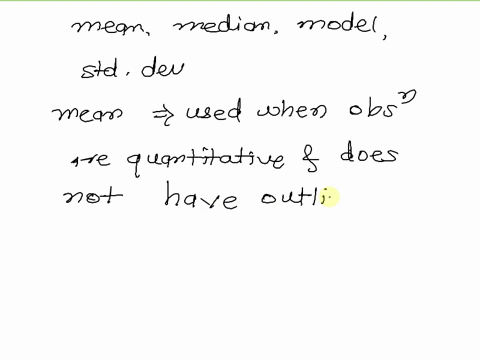 mean, median, model,
std. dev
mean ⇒ used when obsⁿ
are quantitative & does
not have outli